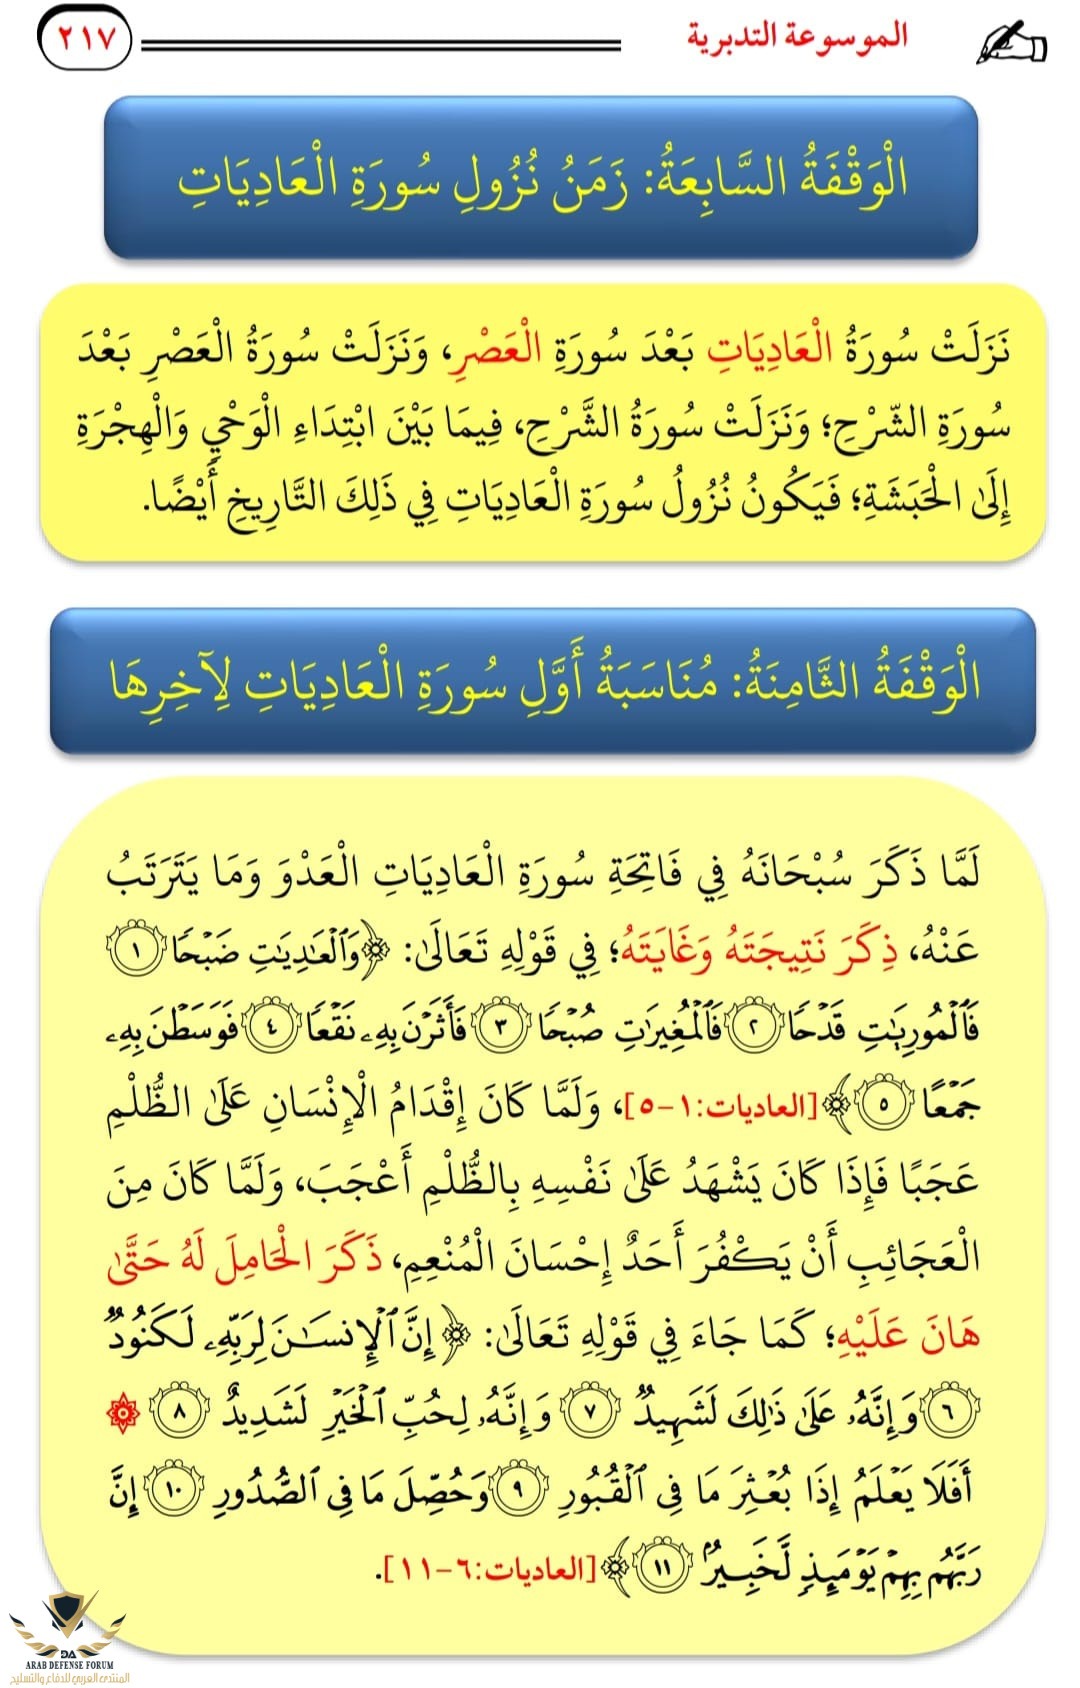 الموسوعة التدبرية
٢١٧
الْوَقْفَةُ السَّابِعَةُ: زَمَنُ نُزُولِ سُورَةِ الْعَادِيَاتِ
نَزَلَتْ سُورَةُ الْعَادِيَاتِ بَعْدَ سُورَةِ الْعَصْرِ، وَنَزَلَتْ سُورَةُ الْعَصْرِ بَعْدَ
سُورَةِ الشّرْحِ؛ وَنَزَلَتْ سُورَةُ الشَّرْحِ، فِيمَا بَيْنَ ابْتِدَاءِ الْوَحْيِ وَالْهِجْرَةِ
إِلَى الْحَبَشَةِ؛ فَيَكُونُ نُزُولُ سُورَةِ الْعَادِيَاتِ فِي ذَلِكَ التَّارِيخِ أَيْضًا.
الْوَقْفَةُ الثَّامِنَةُ: مُنَاسَبَةُ أَوَّلِ سُورَةِ الْعَادِيَاتِ لِآخِرِهَا
لَمَّا ذَكَرَ سُبْحَانَهُ فِي فَاتِحَةِ سُورَةِ الْعَادِيَاتِ الْعَدْوَ وَمَا يَتَرَتَبُ
عَنْهُ، ذِكَرَ نَتِيجَتَهُ وَغَايَتَهُ؛ فِي قَوْلِهِ تَعَالَى: ﴿وَٱلْعَٰدِيَٰتِ ضَبْحًا ١
فَٱلْمُورِيَٰتِ قَدْحًا ٢ فَٱلْمُغِيرَٰتِ صُبْحًا ٣ فَأَثَرْنَ بِهِۦ نَقْعًا ٤ فَوَسَطْنَ بِهِۦ
جَمْعًا ٥﴾ [العاديات:١-٥]، وَلَمَّا كَانَ إِقْدَامُ الْإِنْسَانِ عَلَى الظُّلْمِ
عَجَبًا فَإِذَا كَانَ يَشْهَدُ عَلَى نَفْسِهِ بِالظُّلْمِ أَعْجَبَ، وَلَمَّا كَانَ مِنَ
الْعَجَائِبِ أَنْ يَكْفُرَ أَحَدٌ إِحْسَانَ الْمُنْعِمِ، ذَكَرَ الْحَامِلَ لَهُ حَتَّى
هَانَ عَلَيْهِ؛ كَمَا جَاءَ فِي قَوْلِهِ تَعَالَى: ﴿إِنَّ ٱلْإِنسَٰنَ لِرَبِّهِۦ لَكَنُودٌ
٦ وَإِنَّهُۥ عَلَىٰ ذَٰلِكَ لَشَهِيدٌ ٧ وَإِنَّهُۥ لِحُبِّ ٱلْخَيْرِ لَشَدِيدٌ ٨ ۞
أَفَلَا يَعْلَمُ إِذَا بُعْثِرَ مَا فِي ٱلْقُبُورِ ٩ وَحُصِّلَ مَا فِي ٱلصُّدُورِ ١٠ إِنَّ
رَبَّهُم بِهِمْ يَوْمَئِذٍ لَّخَبِيرٌۢ ١١﴾ [العاديات:٦-١١].
DA
ARAB DEFENSE FORUM
المنتدى العربي للدفاع والتسليح